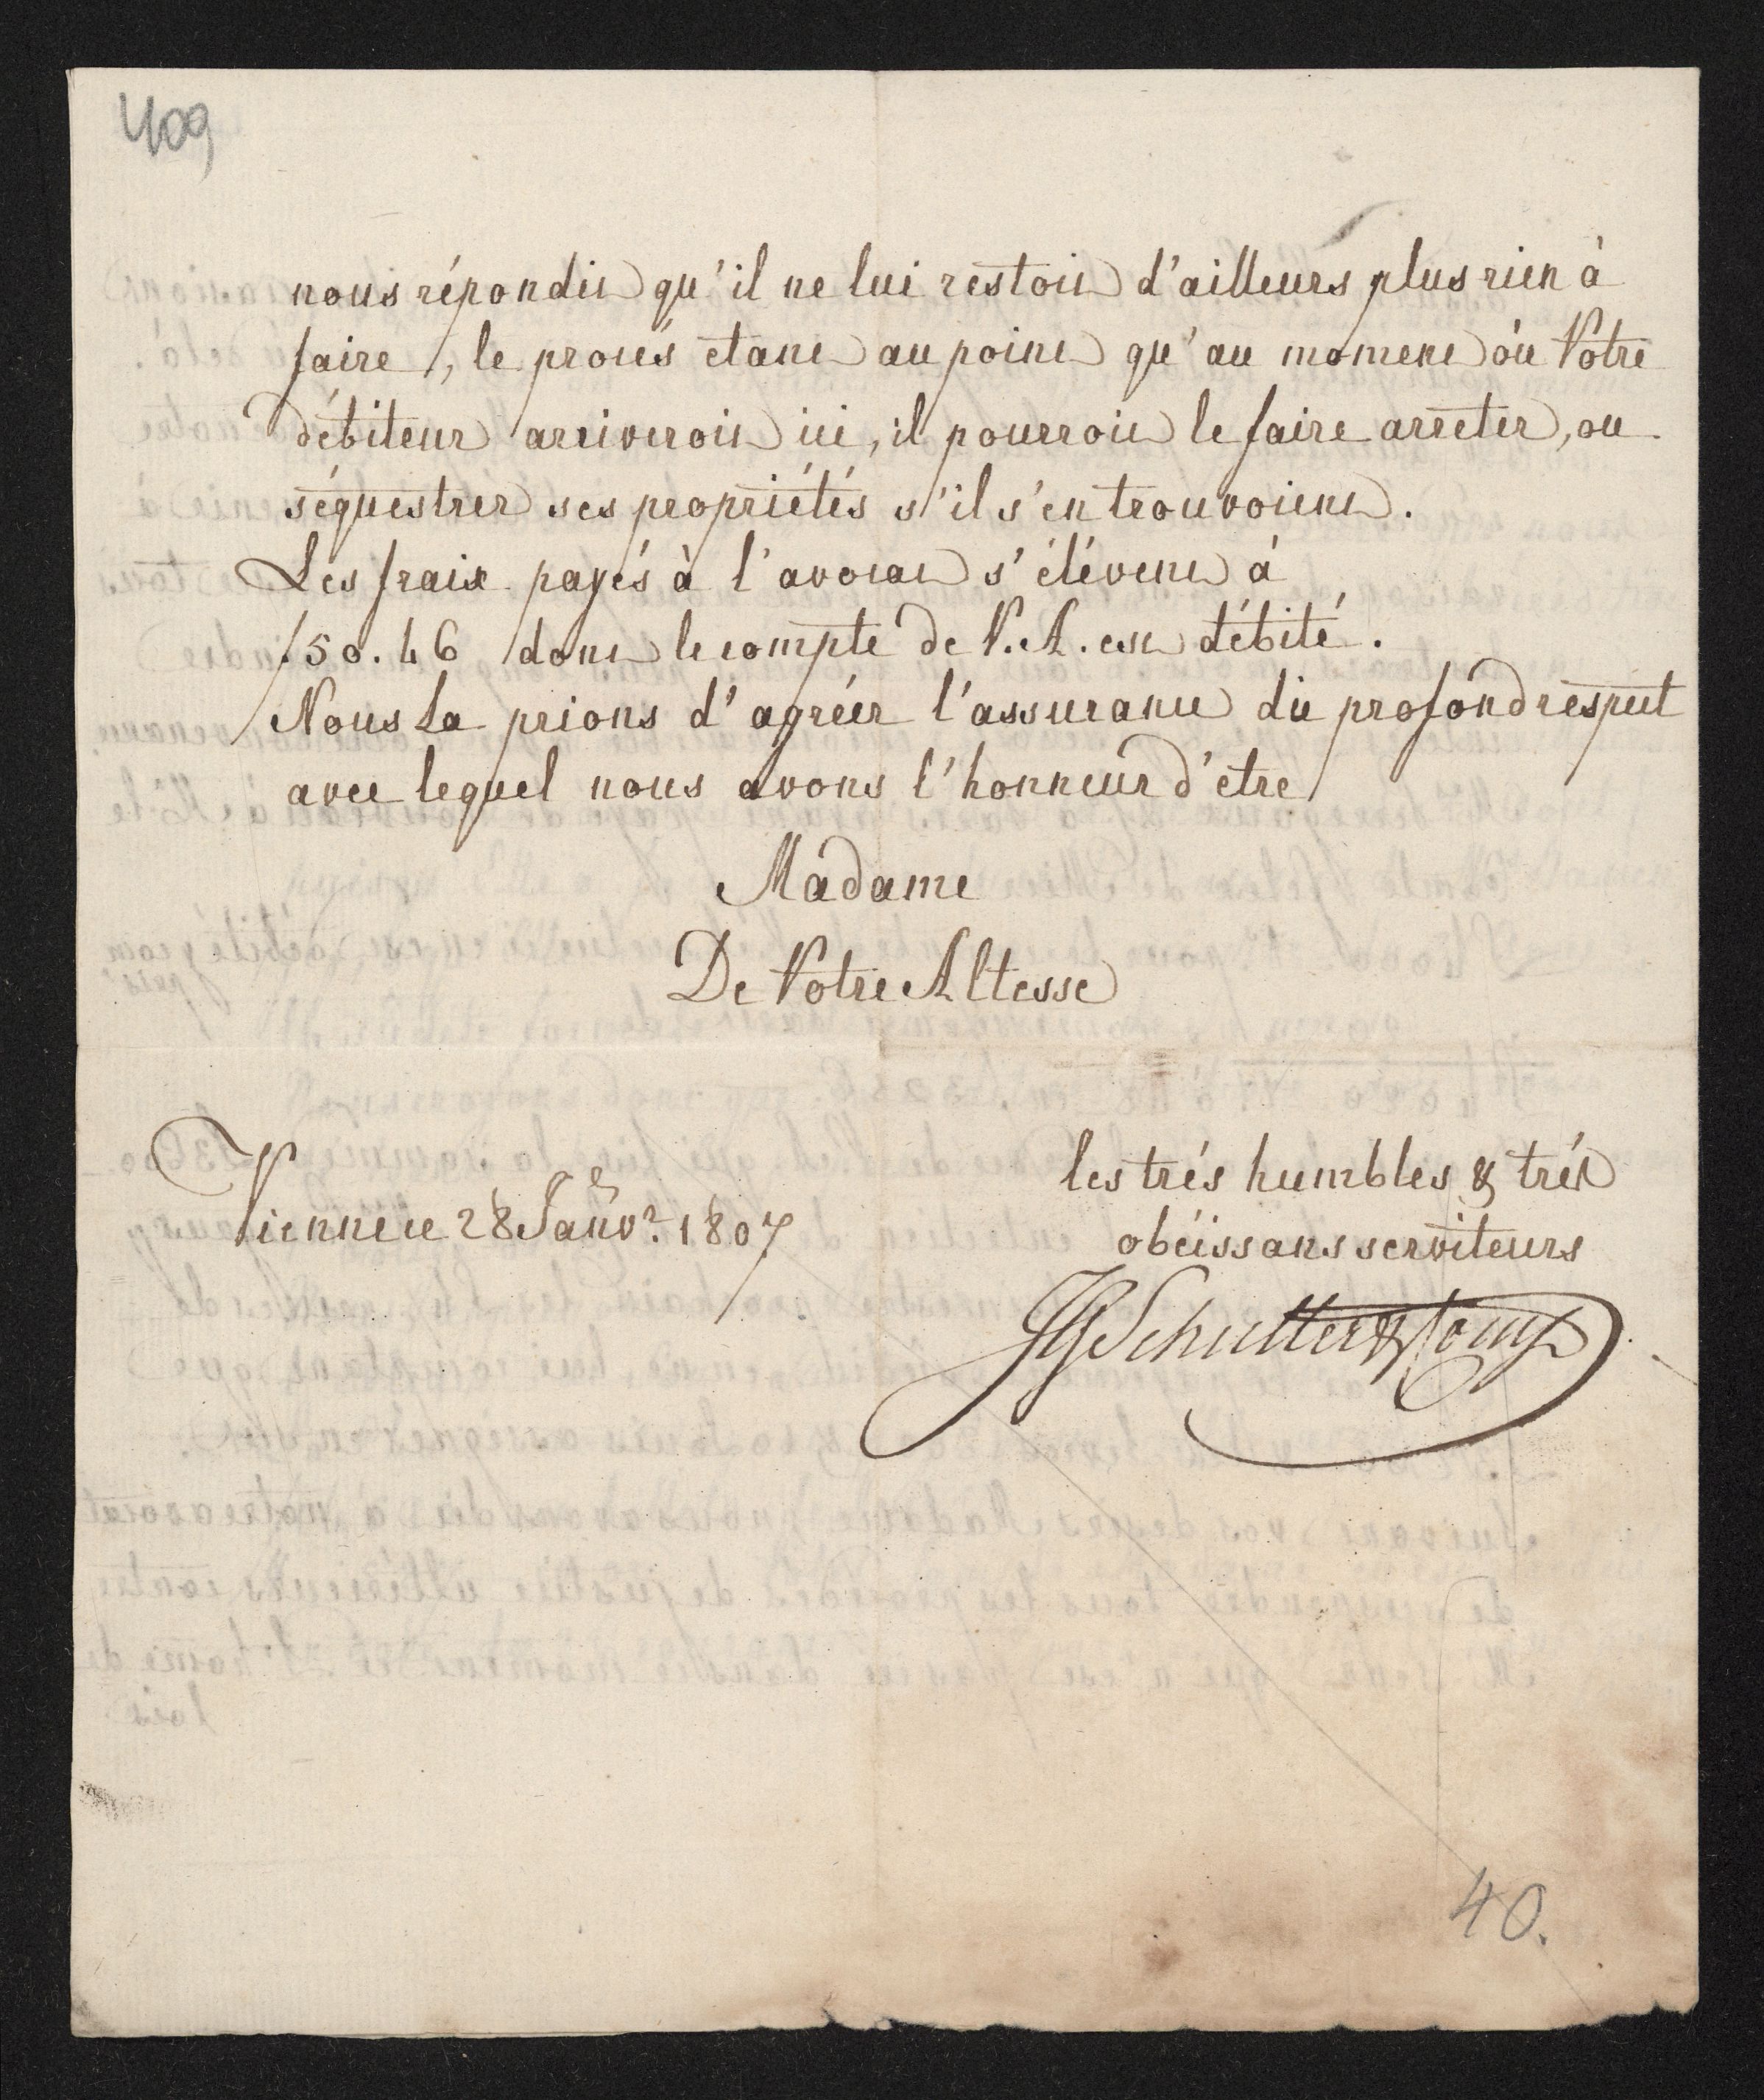 409
nous répondit qu'il ne lui restoit d'ailleurs plus rien à
faire, le procés etant au point qu'au moment où Votre
débiteur arriveroit ici, il pourroit le faire arrêter, ou
séquestrer ses propriétés s'il s'en trouvoient.
Les fraix payés à l'avocat s'élévent à
f 50.46 dont le compte de V. A. est débité.
Nous La prions d'agréer l'assurance du profond respect
avec lequel nous avons l'honneur d'etre
Madame
De Votre Altesse
les trés humbles & trés
Vienne ce 28 Janvr. 1807
obéissans serviteurs
JG Schuller & Comp
40.